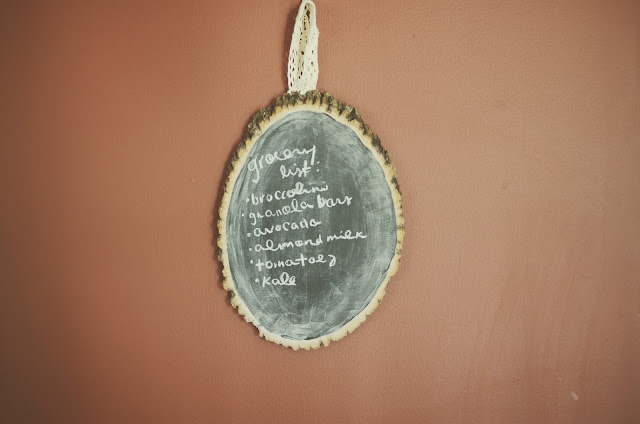 grocery
list:
• broccolini
• granola bars
• avocado
• almond milk
• tomatoes
• kale